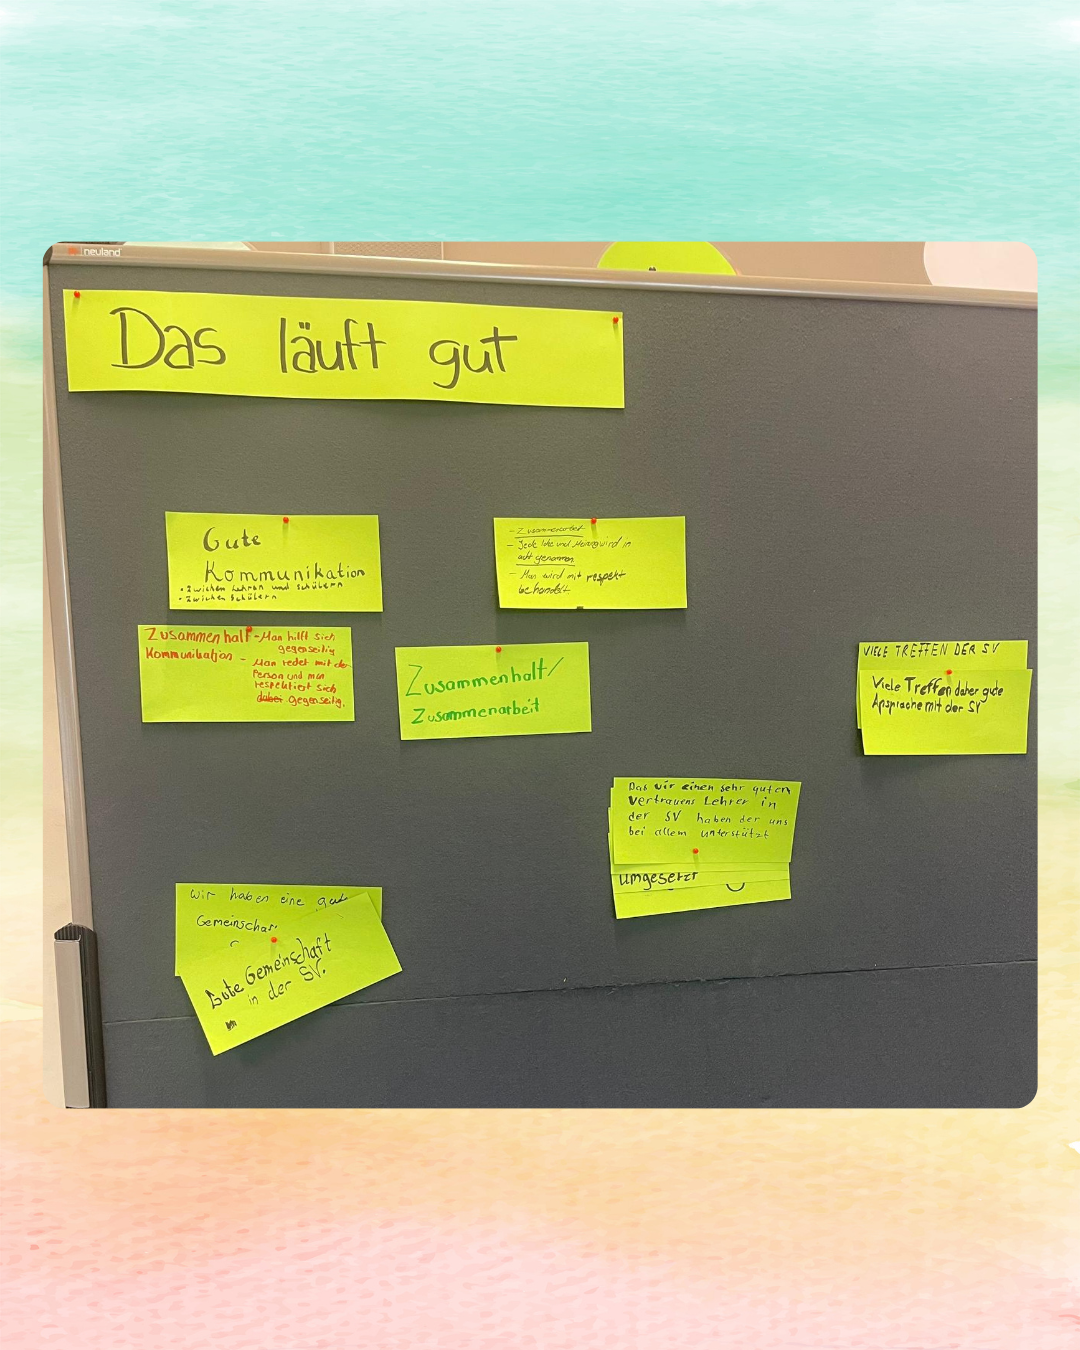 neuland
Das läuft gut
Gute
Kommunikation
• Zwichen Lehren und Schülern
• Zwichen Schülern
- Zusammenarbeit
- Jede Idee und Meinung wird in
acht genommen
- Man wird mit respekt
behandelt
Zusammenhalt - Man hilft sich
gegenseitig
Kommunikation -
Man redet mit der
Person und man
respektiert sich
dabei gegenseitig.
Zusammenhalt/
Zusammenarbeit
VIELE TREFFEN DER SV
Viele Treffen daher gute
Apsprache mit der SV
Das wir einen sehr guten
Vertrauens Lehrer in
der SV haben der uns
bei allem unterstützt
umgesetzt
Wir haben eine gute
Gemeinschaf
Gute Gemeinschaft
in der SV.